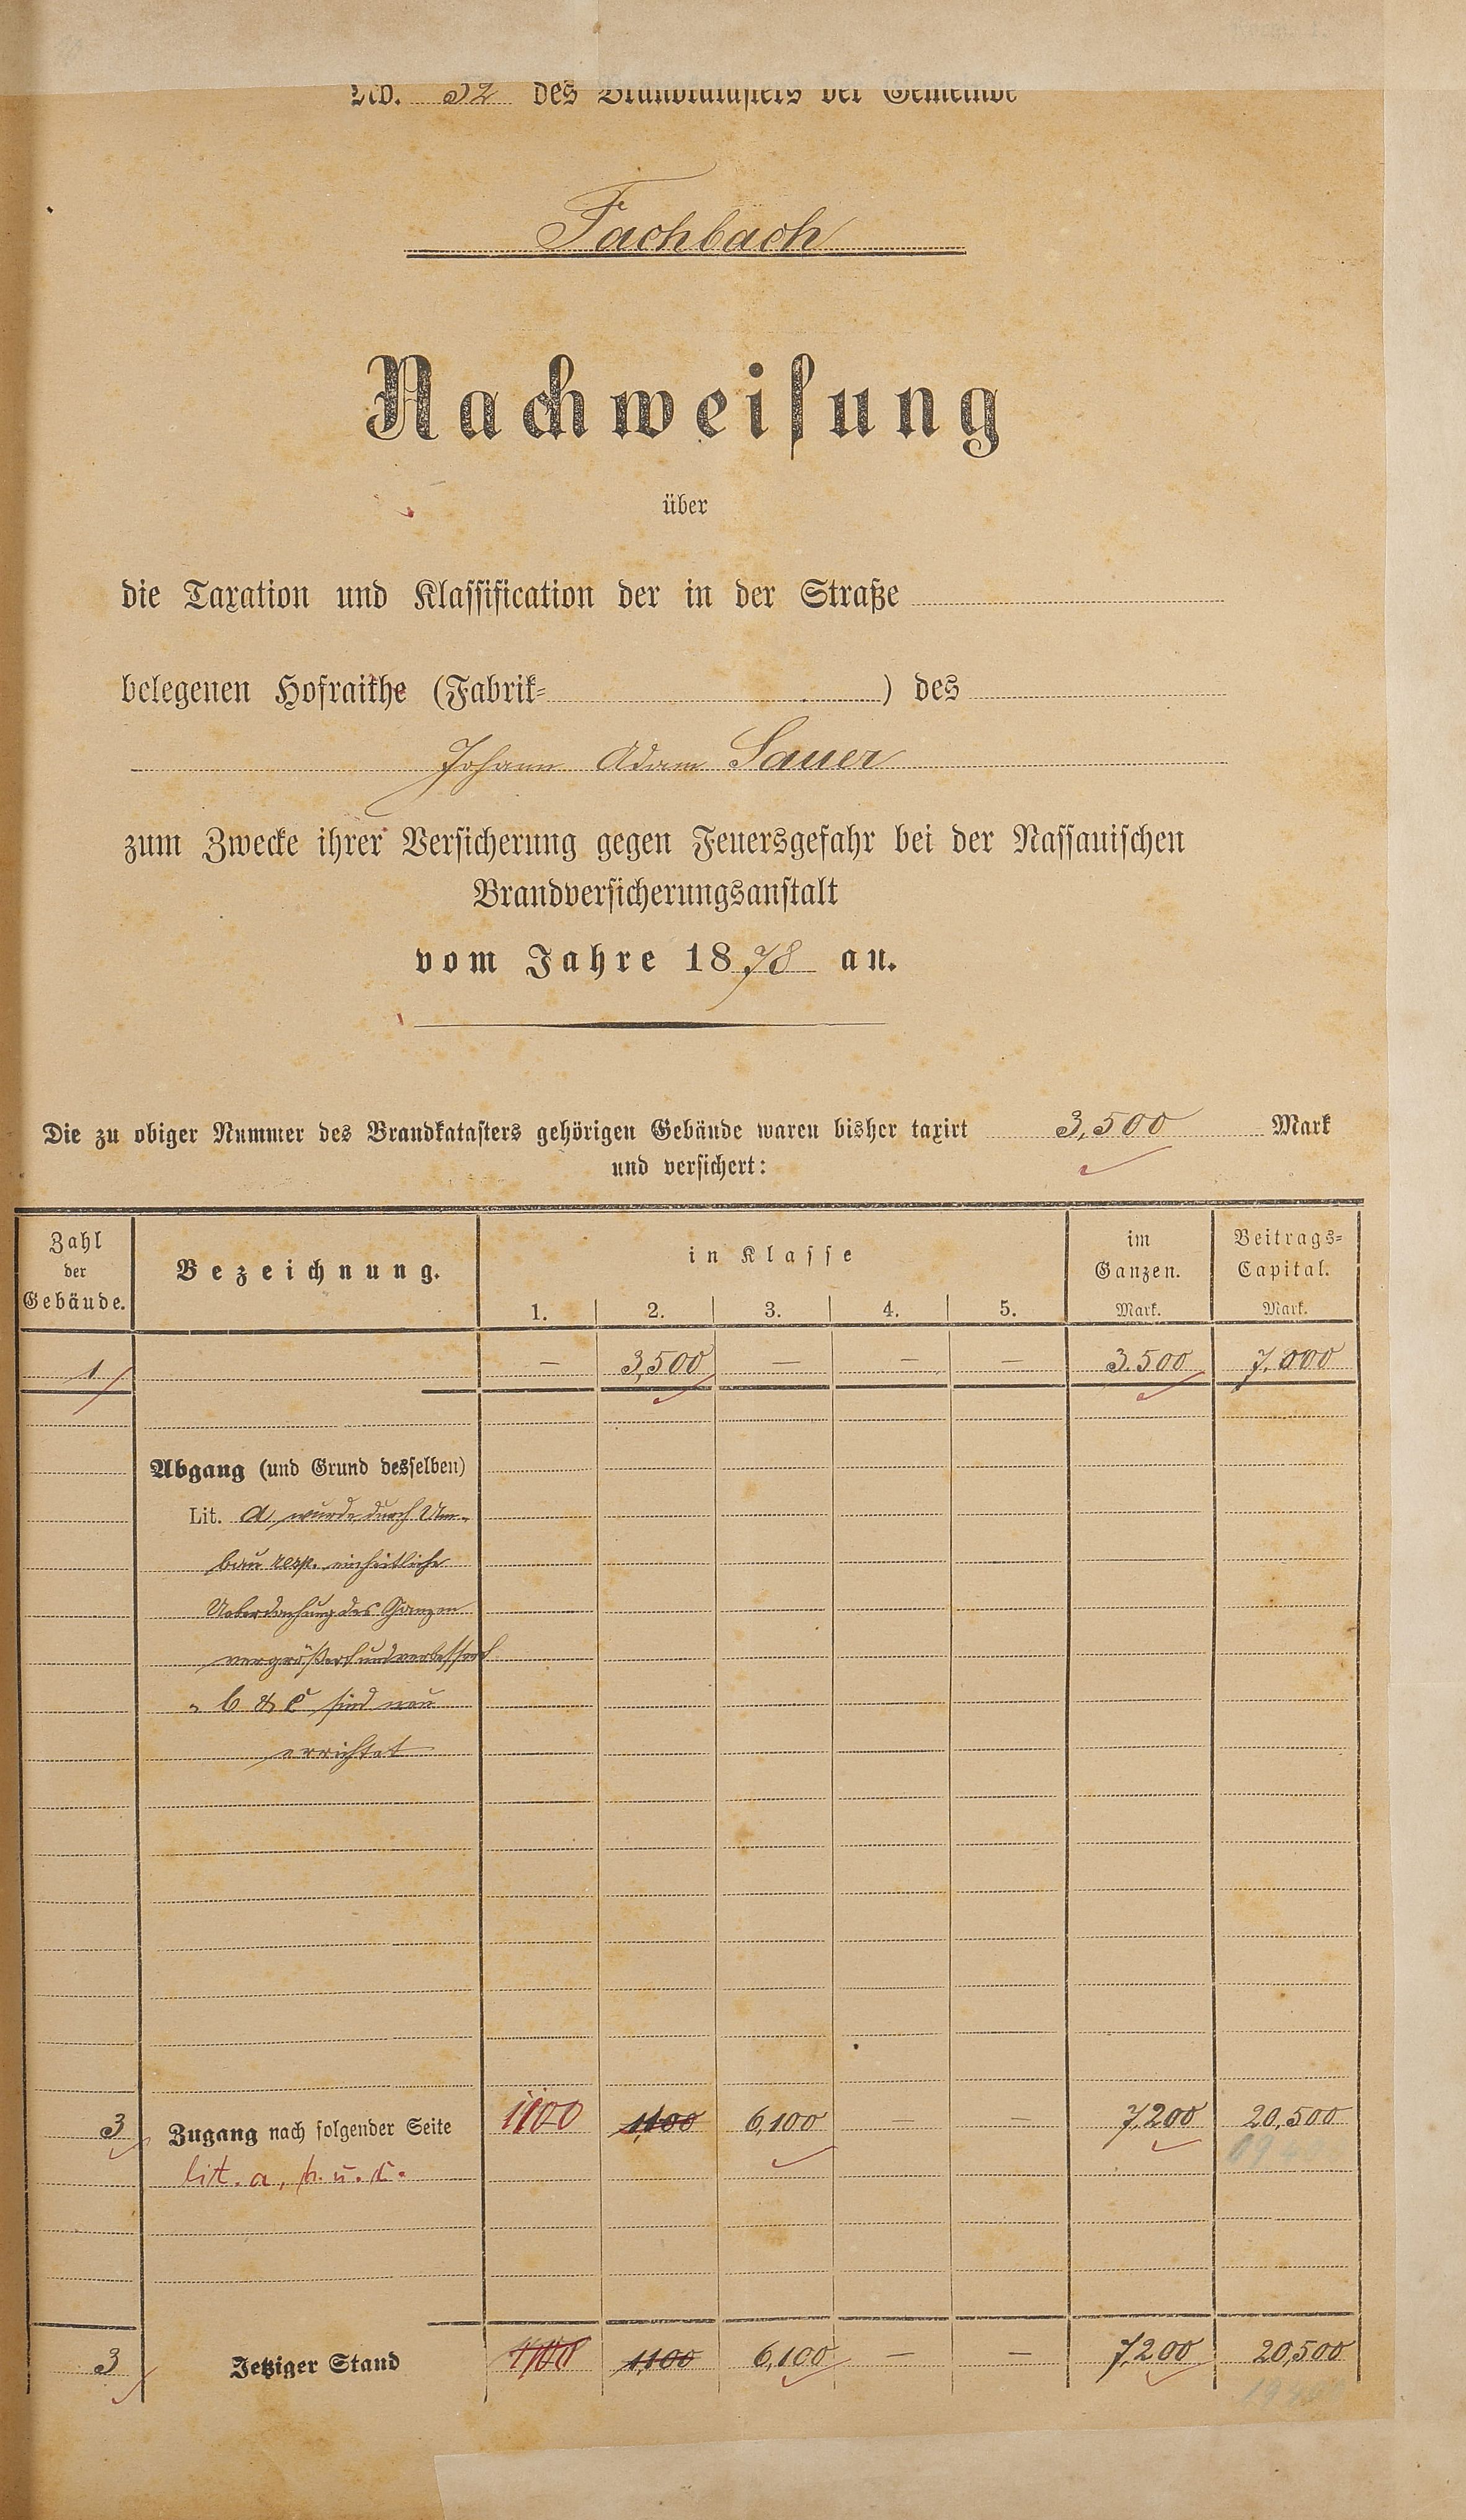 No. 52 des Brandkatasters der Gemeinde
Fachbach
Nachweisung
über
die Taxation und Klassification der in der Straße
belegenen Hofraithe (Fabrik- ) des
Johann Adam Sauer
zum Zwecke ihrer Versicherung gegen Feuersgefahr bei der Nassauischen
Brandversicherungsanstalt
vom Jahre 1878 an.
Die zu obiger Nummer des Brandkatasters gehörigen Gebäude waren bisher taxirt 3,500 Mark
und versichert:
Zahl der Gebäude. Bezeichnung. in Klasse im Ganzen. Beitrags-Capital.
1. 2. 3. 4. 5. Mark. Mark.
1 — 3,500 — — — 3.500 7.000
Abgang (und Grund desselben)
Lit. a wurde durch Um-
bau resp. einheitliche
Ueberdachung des Ganzen
vergrößert und verbessert
" b & c sind neu
errichtet
3 Zugang nach folgender Seite 1100 1,100 6,100 — — 7,200 20,500
lit. a, b. u. c.
3 Jetziger Stand 1100 1,100 6,100 — — 7,200 20,500